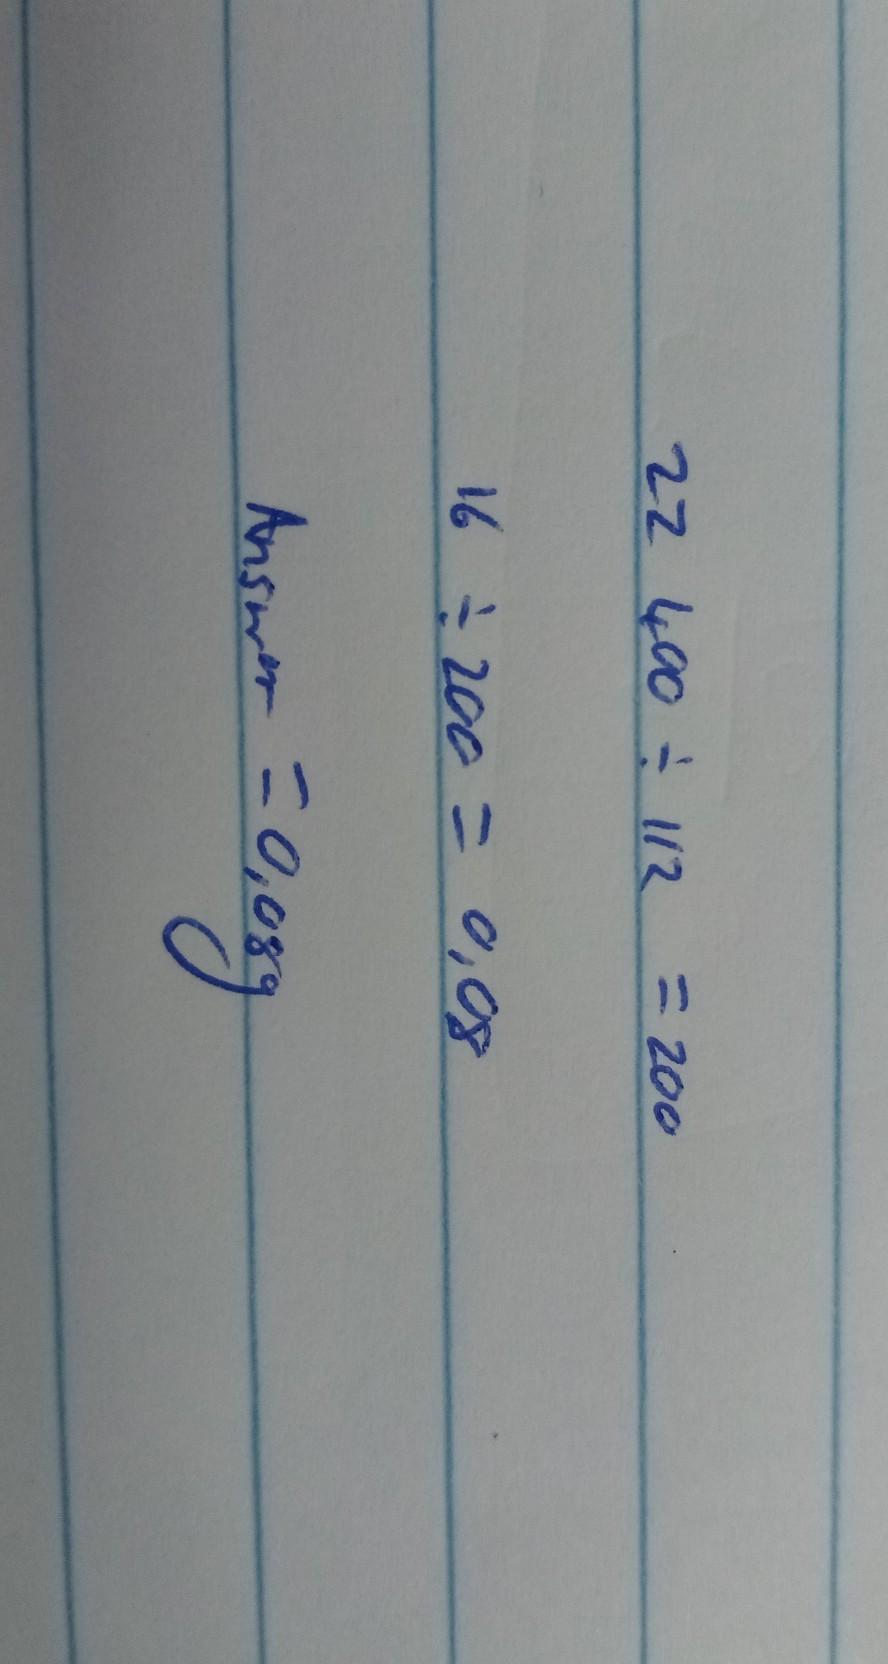 22 400 ÷ 112 = 200
16 ÷ 200 = 0,08
Answer = 0,08g